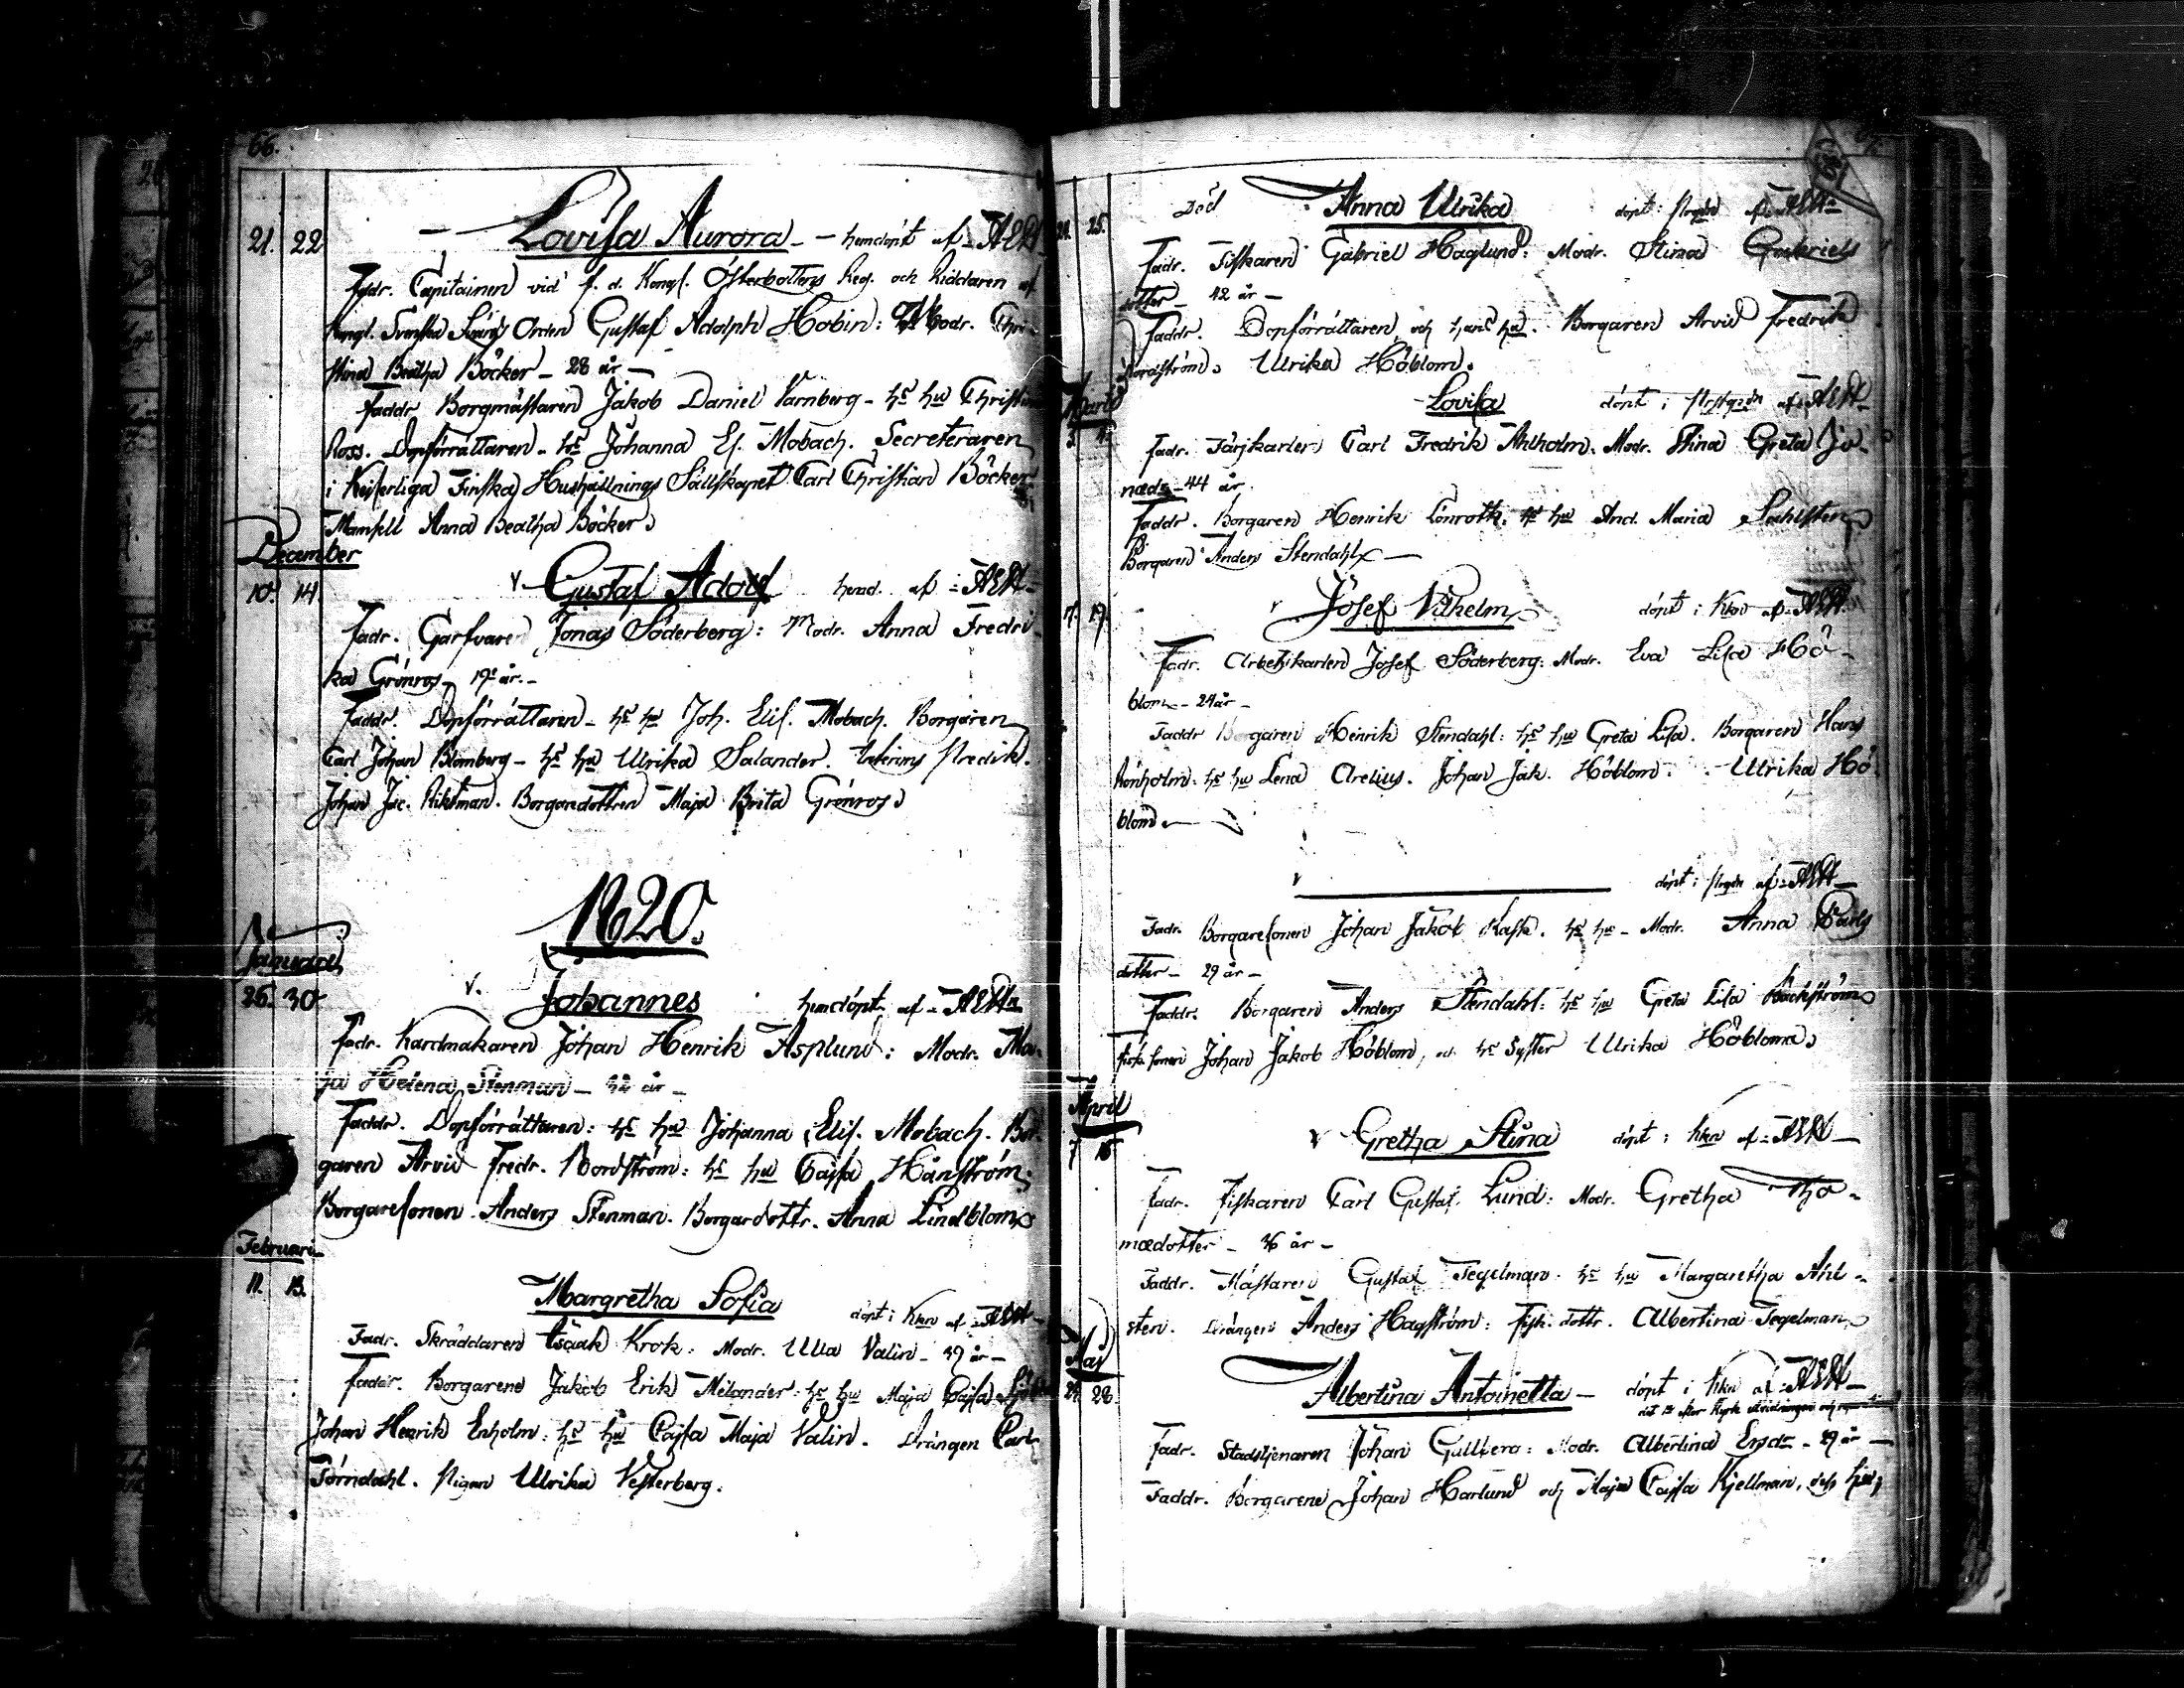 66.
21. 22 Lovisa Aurora - hemdöpt af AEH
Fadr. Capitainen vid f. d. Kongl. Österbottens Reg. och Riddaren af
Kongl. Svenska Svärds Orden Gustaf Adolph Hobin: Modr. Chri-
stina Beatha Böcker - 28 år -
Faddr. Borgmästaren Jakob Daniel Varnberg - hs hu Christina
Ross. Dopförrättaren - hs Johanna El. Mobach. Secreteraren
i Keiserliga Finska Hushållnings Sällskapet Carl Christian Böcker
Mamsell Anna Beatha Böcker.
December
10. 14. v Gustaf Adolf hemd. af AEH
Fadr. Garfvaren Jonas Söderberg: Modr. Anna Fredri-
ka Grönros - 19 år. -
Faddr. Dopförrättaren - hs hu Joh. Elis. Mobach. Borgaren
Carl Johan Blomberg - hs hu Ulrika Salander.
Johan Jac. Riktman. Borgaredottren Maja Brita Grönros.
1820.
Januari
26. 30 v. Johannes hemdöpt af AEH
Fadr. Kardmakaren Johan Henrik Asplund: Modr. Ma-
ja Helena Stenman - 32 år -
Faddr. Dopförrättaren: hs hu Johanna Elis. Mobach. Bor-
garen Arvid Fredr. Nordström: hs hu Cajsa Hånström.
Borgaresonen Anders Stenman. Borgardottr. Anna Lindblom
Februari
11. 13. Margretha Sofia döpt i Kkn af AEH
Fadr. Skräddaren Isaak Krok: Modr. Ulla Valin - 39 år -
Faddr. Borgarene Jakob Erik Melander: hs hu Maja Cajsa
Johan Henrik Enholm: hs hu Cajsa Maja Valin. Drängen Carl
Törndahl. Pigan Ulrika Vesterberg.
25. Död Anna Ulrika döpt i af AEH
Fadr. Fiskaren Gabriel Haglund: Modr. Stina Gabriels
dotter - 42 år -
Faddr. Dopförrättaren och hans hu. Borgaren Arvid Fredrik
Nordström. Ulrika Höblom.
Martii
Lovisa döpt i af AEH
Fadr. Färjkarlen Carl Fredrik Ahlholm. Modr. Stina Greta Jo-
næd: - 44 år.
Faddr. Borgaren Henrik Lönroth: hs hu And. Maria Sahlsten
Borgaren Anders Stendahl -
17. 19. v Josef Vilhelm döpt i Kkn af AEH
Fadr. Arbetskarlen Josef Söderberg: Modr. Eva Lisa Hö-
blom - 24 år -
Faddr Borgaren Henrik Stendahl: hs hu Greta Lisa. Borgaren Hans
Rönholm: hs hu Lena Arelius. Johan Jak. Höblom. Ulrika Hö
blom.
v döpt i af AEH
Fadr. Borgaresonen Johan Jakob Kask. hs hu - Modr. Anna Carls
dotter - 29 år -
Faddr. Borgaren Anders Stendahl: hs hu Greta Lisa Bäckström
Johan Jakob Höblom, och hs Syster Ulrika Höblom.
April
7 16 v Gretha Stina döpt i Kkn af AEH
Fadr. Fiskaren Carl Gustaf Lund: Modr. Gretha Tho-
mædotter - 36 år -
Faddr. Mästaren Gustaf Tegelman: hs hu Margaretha Ahl-
sten. Drängen Anders Hagström: Fisk. dottr. Albertina Tegelman
Maj
28 Albertina Antoinetta - döpt i Kkn af AEH
Fadr. Stadstjenaren Johan Gullberg: Modr. Albertina Ersdr - 29 år -
Faddr. Borgarene Johan Harlund och Maja Cajsa Kjellman,